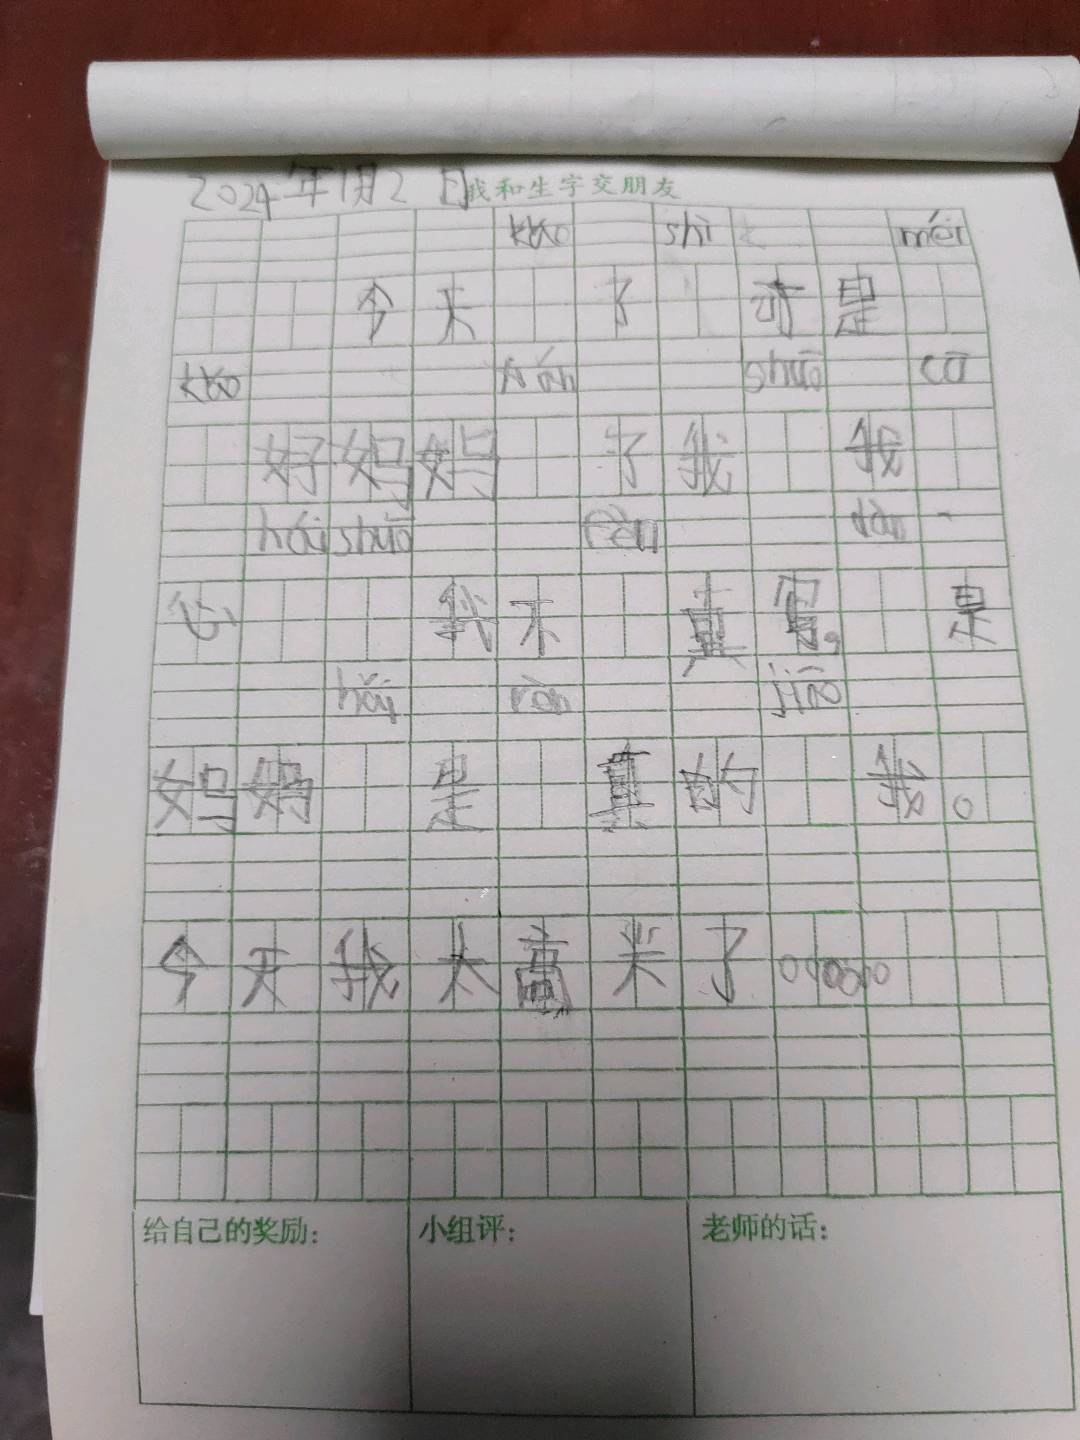 2024年1月2日
我和生字交朋友
kǎo shì méi
今天 了 可是
kǎo shuō cū
好妈妈 了我 我
hái shuō
心 我不 真 是
jiāo
妈妈 是 真的 我。
今天我太高兴了
给自己的奖励: 小组评: 老师的话: